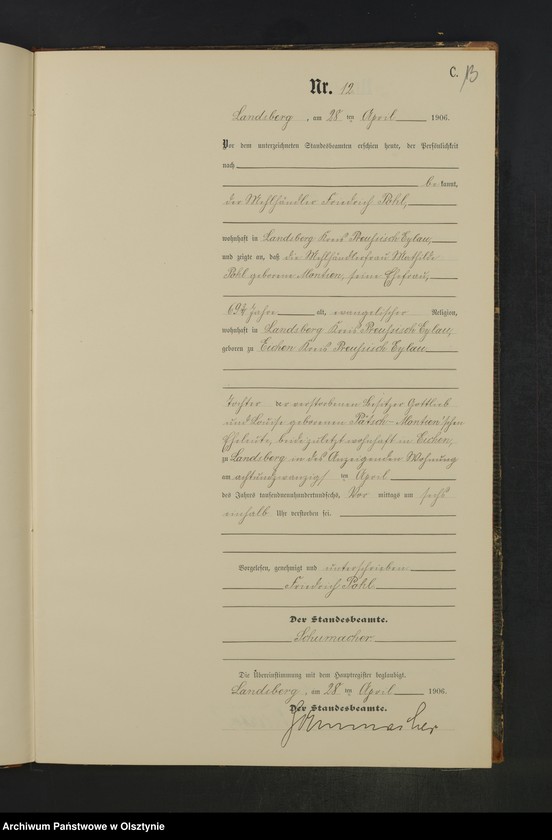 C.
13
Nr. 12
Landsberg, am 28 ten April 1906.
Vor dem unterzeichneten Standesbeamten erschien heute, der Persönlichkeit
nach
be kannt,
der Mehlhändler Friedrich Pohl,
wohnhaft in Landsberg Kreis Preußisch Eylau,
und zeigte an, daß die Mehlhändlerfrau Mathilde
Pohl geborene Montien, seine Ehefrau,
69¾ Jahre alt, evangelischer Religion,
wohnhaft in Landsberg Kreis Preußisch Eylau,
geboren zu Eichen Kreis Preußisch Eylau
Tochter der verstorbenen Besitzer Gottlieb
und Louise geborenen Pätsch-Montien'schen
Eheleute, beide zuletzt wohnhaft in Eichen,
zu Landsberg in des Anzeigenden Wohnung
am achtundzwanzig ten April
des Jahres tausendneunhundertundsechs, Vor mittags um sechs
einhalb Uhr verstorben sei.
Vorgelesen, genehmigt und unterschrieben
Friedrich Pohl
Der Standesbeamte.
Schumacher
Die Übereinstimmung mit dem Hauptregister beglaubigt.
Landsberg, am 28 ten April 1906.
Der Standesbeamte.
Schumacher
Archiwum Państwowe w Olsztynie